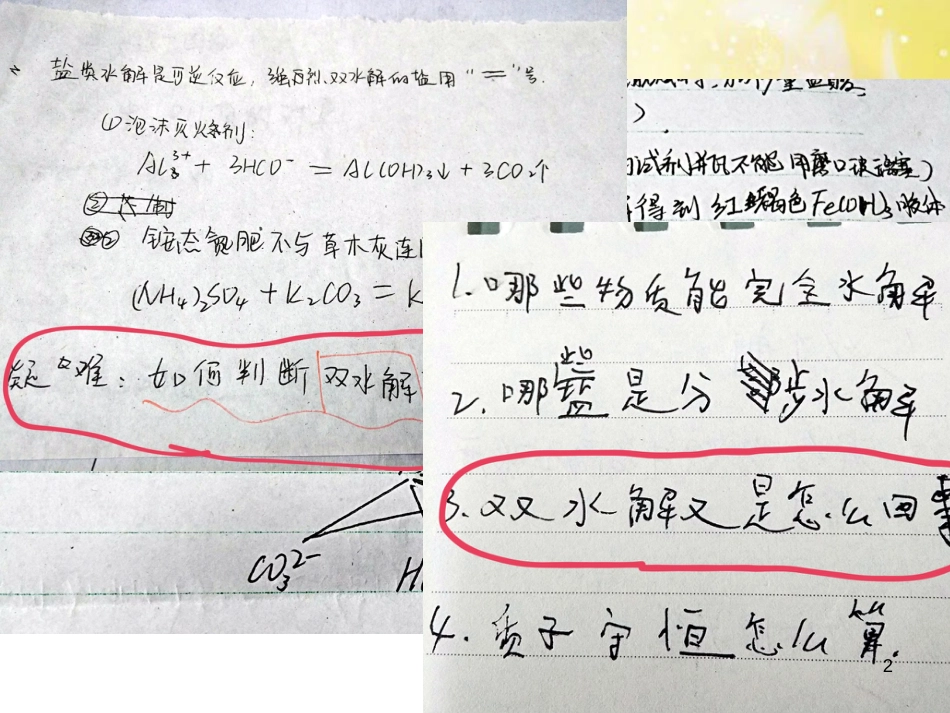 盐类水解是可逆反应，强烈、双水解的盐用“＝”号.
①泡沫灭火剂：
Al³⁺ + 3HCO⁻ = Al(OH)₃↓ + 3CO₂↑
② 铵态氮肥不与草木灰连
(NH₄)₂SO₄ + K₂CO₃ = K
疑难：如何判断双水解
CO₃²⁻
H
)
试剂瓶不能用磨口玻璃塞）
得到 红褐色Fe(OH)₃胶体
1.哪些物质能完全水解
2.哪些盐是分步水解
3.双水解又是怎么回事
4.质子守恒怎么算.
2